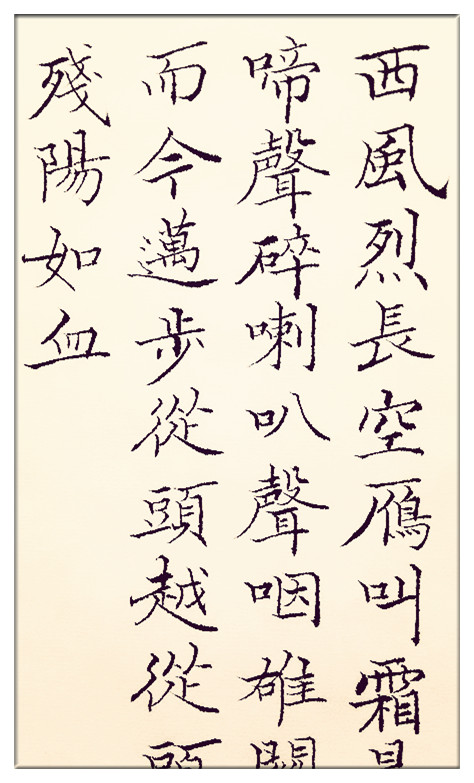 西風烈長空鴈叫霜
啼聲碎喇叭聲咽雄關
而今邁步從頭越從頭
殘陽如血